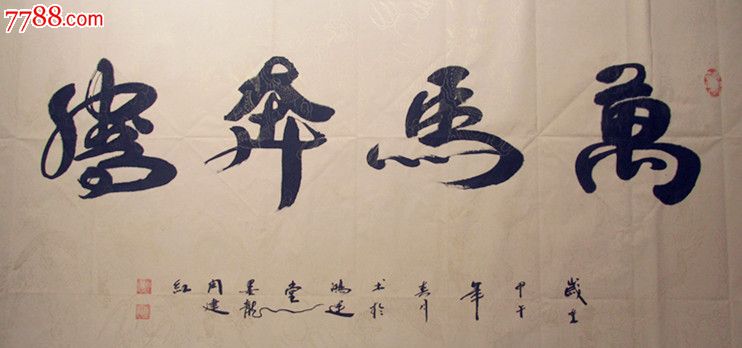 7788.com
萬馬奔騰
歲在甲午年春月书於鴻運堂墨龍周建紅